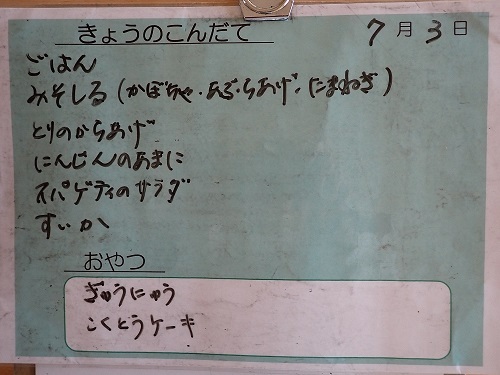 きょうのこんだて 7月3日
ごはん
みそしる(かぼちゃ・あぶらあげ・たまねぎ)
とりのからあげ
にんじんのあまに
スパゲティのサラダ
すいか
おやつ
ぎゅうにゅう
こくとうケーキ